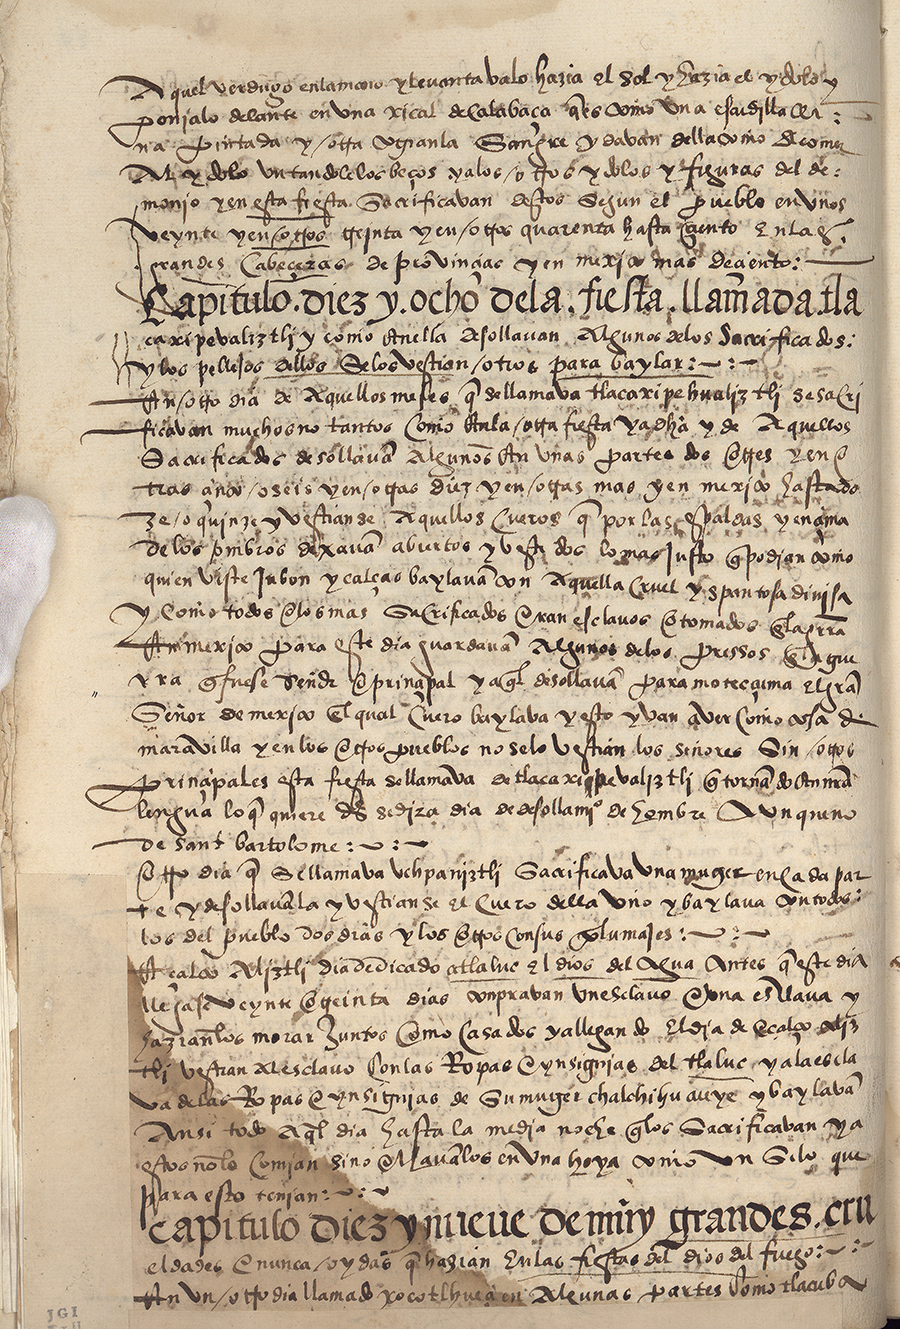 Aquel verdugo en la mano y levantavalo hazia el sol y hazia el ydolo y
ponjalo delante en una xical de calabaça q̃ es como una escudilla de:
na pintada y / otra cogian la sangre y davan della como de comer
Al ydolo untandole los beços y a los / otros ydolos y figuras del de:
monjo y en esta fiesta sacrificavan destos segun el pueblo en unos
veynte y en / otros treinta y en / otros quarenta hasta çiento En las
grandes Cabeçeras de provinçias y en mexico mas de çiento:
Capitulo. diez y. ocho de la. fiesta. llamada. tla
caxipevaliztli y como En ella desollavan Algunos de los Sacrificados:
y los pellejos dellos Se los vestian / otros para baylar:~:~
En / otro dia de Aquellos meses q̃ se llamava tlacaxipehualiztli se sacri
ficavan muchos no tantos Como En la / otra fiesta ya dha y de Aquellos
Sacrificados desollavan Algunos En unas partes dos o tres y en o
tras quatro / o seis y en / otras diez y en / otras mas y en mexico hasta do
ze / o quinze y vestianse Aquellos Cueros q̃ por las espaldas y ençima
de los ombros dexavan abiertos y vestidos lo mas Justo q̃ podian como
quien viste Jubon y calças baylavan con Aquella Cruel y spantosa divisa
y Como todos o los mas Sacrificados Eran esclavos o tomados En la grrã
En mexico para este dia guardavan Algunos de los pressos En la gue
rra q̃ fuese Señor o prinçipal y aql desollavan para moteccuma El grã
Señor de mexico El qual Cuero baylava y esto yvan a ver Como cosa de
maravilla y en los otros pueblos no se lo vestian los señores Sin / otros
prinçipales esta fiesta se llamava de tlacaxipevaliztli q̃ tornãdo En nrã
lengua lo q̃ quiere dẽs se diza dia de desollamjº de hombre Aunque no
de sant bartolome:~:~
Otro dia q̃ se llamava vchpaniztli Sacrificava una muger en cada par
te y desollavanla y vestianse el Cuero della uno y baylava con todos:
los del pueblo dos dias y los otros Con sus plumajes:~:~
Etcalcoaliztli dia dedicado a tlaluc El dios del Agua Antes q̃ este dia
llegase veynte o treinta dias conpravan un esclavo o una esclava y
hazianlos morar Juntos Como Casados y allegando El dia de etcalcoaliz
tli vestian Al esclavo Con las Ropas o ynsignjas del tlaluc y a la escla
va de las Ropas o ynsignjas de Su muger chalchihucueye y baylavan
Ansi todo Aql dia hasta la media noche q̃ los Sacrificavan y a
estos no los Comjan Sino echavanlos en una hoya como un Silo que
para esto tenjan:~:~
capitulo diez y nueue de muy grandes. cru
eldades o nunca / oydas q̃ hazian En las fiestas del dios del fuego:~:~
En un / otro dia llamado xocotlhueçi en Algunas partes Como tlacuba
JGI